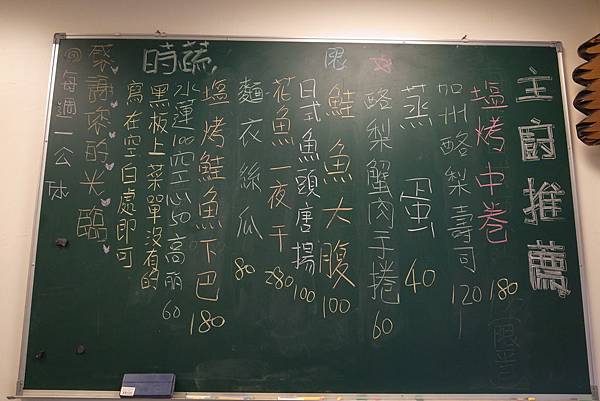 主廚推薦
塩烤中卷 180
加州酪梨壽司 120
蒸蛋 40
酪梨蟹肉手捲 60
限 鮭魚大腹 100
日式魚頭唐揚 100
花魚一夜干 280
麵衣絲瓜 80
塩烤鮭魚下巴 180
時蔬
水蓮100 空心50 高麗60
黑板上菜單沒有的
寫在空白處即可
感謝您的光臨
每週一公休